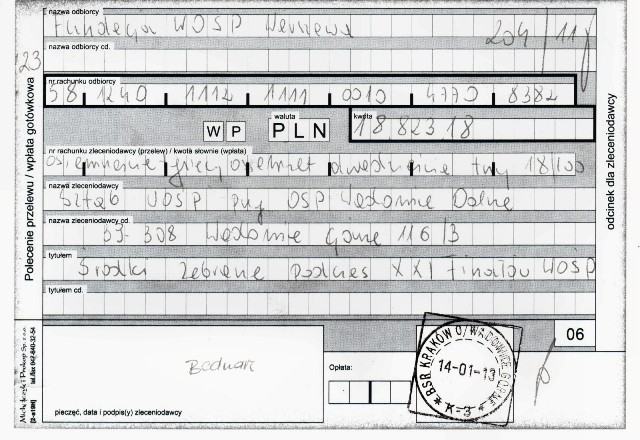 nazwa odbiorcy
Fundacja WOSP Warszawa
204/11
nazwa odbiorcy cd.
23
nr rachunku odbiorcy
58 1240 1112 1111 0010 4770 8382
W P
waluta
PLN
kwota
18 823 18
nr rachunku zleceniodawcy (przelew) / kwota słownie (wpłata)
osiemnaście tysięcy osiemset dwadzieścia trzy 18/100
nazwa zleceniodawcy
Sztab WOSP przy OSP Wadowice Dolne
nazwa zleceniodawcy cd.
33-308 Wadowice Górne 116/3
tytułem
Środki zebrane podczas XXI Finału WOŚP
tytułem cd.
Polecenie przelewu / wpłata gotówkowa
odcinek dla zleceniodawcy
06
Bednarz
Opłata:
BSR. KRAKÓW O/WADOWICE GÓRNE
14-01-13
* K-3 *
pieczęć, data i podpis(y) zleceniodawcy